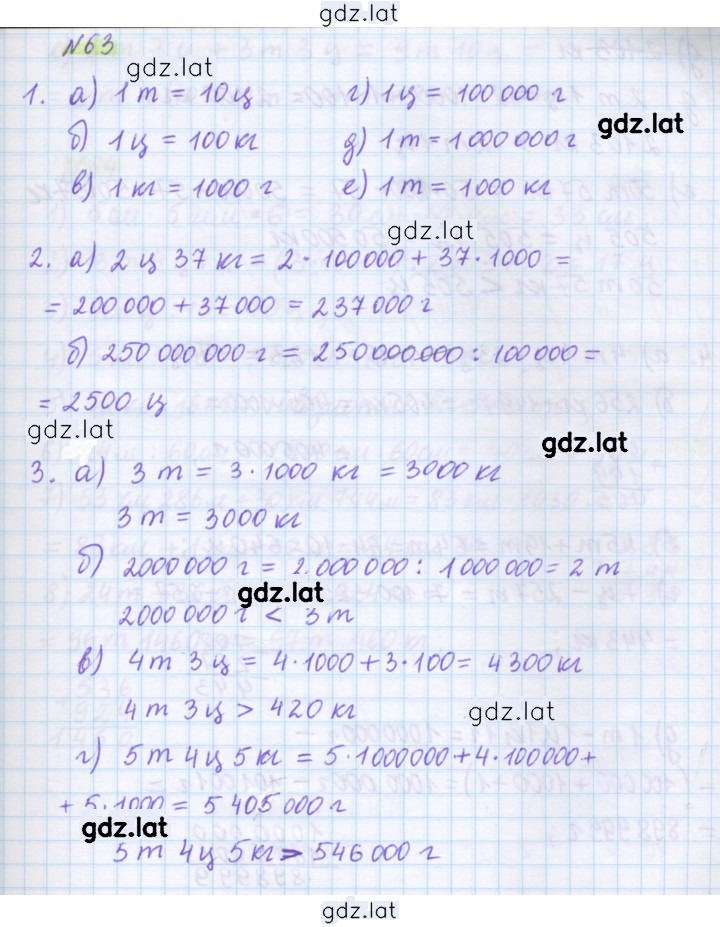 gdz.lat
№63
gdz.lat
1. а) 1 т = 10 ц г) 1 ц = 100 000 г
gdz.lat
б) 1 ц = 100 кг д) 1 т = 1 000 000 г
в) 1 кг = 1000 г е) 1 т = 1000 кг
gdz.lat
2. а) 2 ц 37 кг = 2 · 100 000 + 37 · 1000 =
= 200 000 + 37 000 = 237 000 г
б) 250 000 000 г = 250 000 000 : 100 000 =
= 2500 ц
gdz.lat
gdz.lat
3. а) 3 т = 3 · 1000 кг = 3000 кг
3 т = 3000 кг
б) 2000 000 г = 2 000 000 : 1 000 000 = 2 т
gdz.lat
2000 000 г < 3 т
в) 4 т 3 ц = 4 · 1000 + 3 · 100 = 4 300 кг
4 т 3 ц > 420 кг
gdz.lat
г) 5 т 4 ц 5 кг = 5 · 1000000 + 4 · 100000 +
+ 5 · 1000 = 5 405 000 г
gdz.lat
5 т 4 ц 5 кг > 546 000 г
gdz.lat